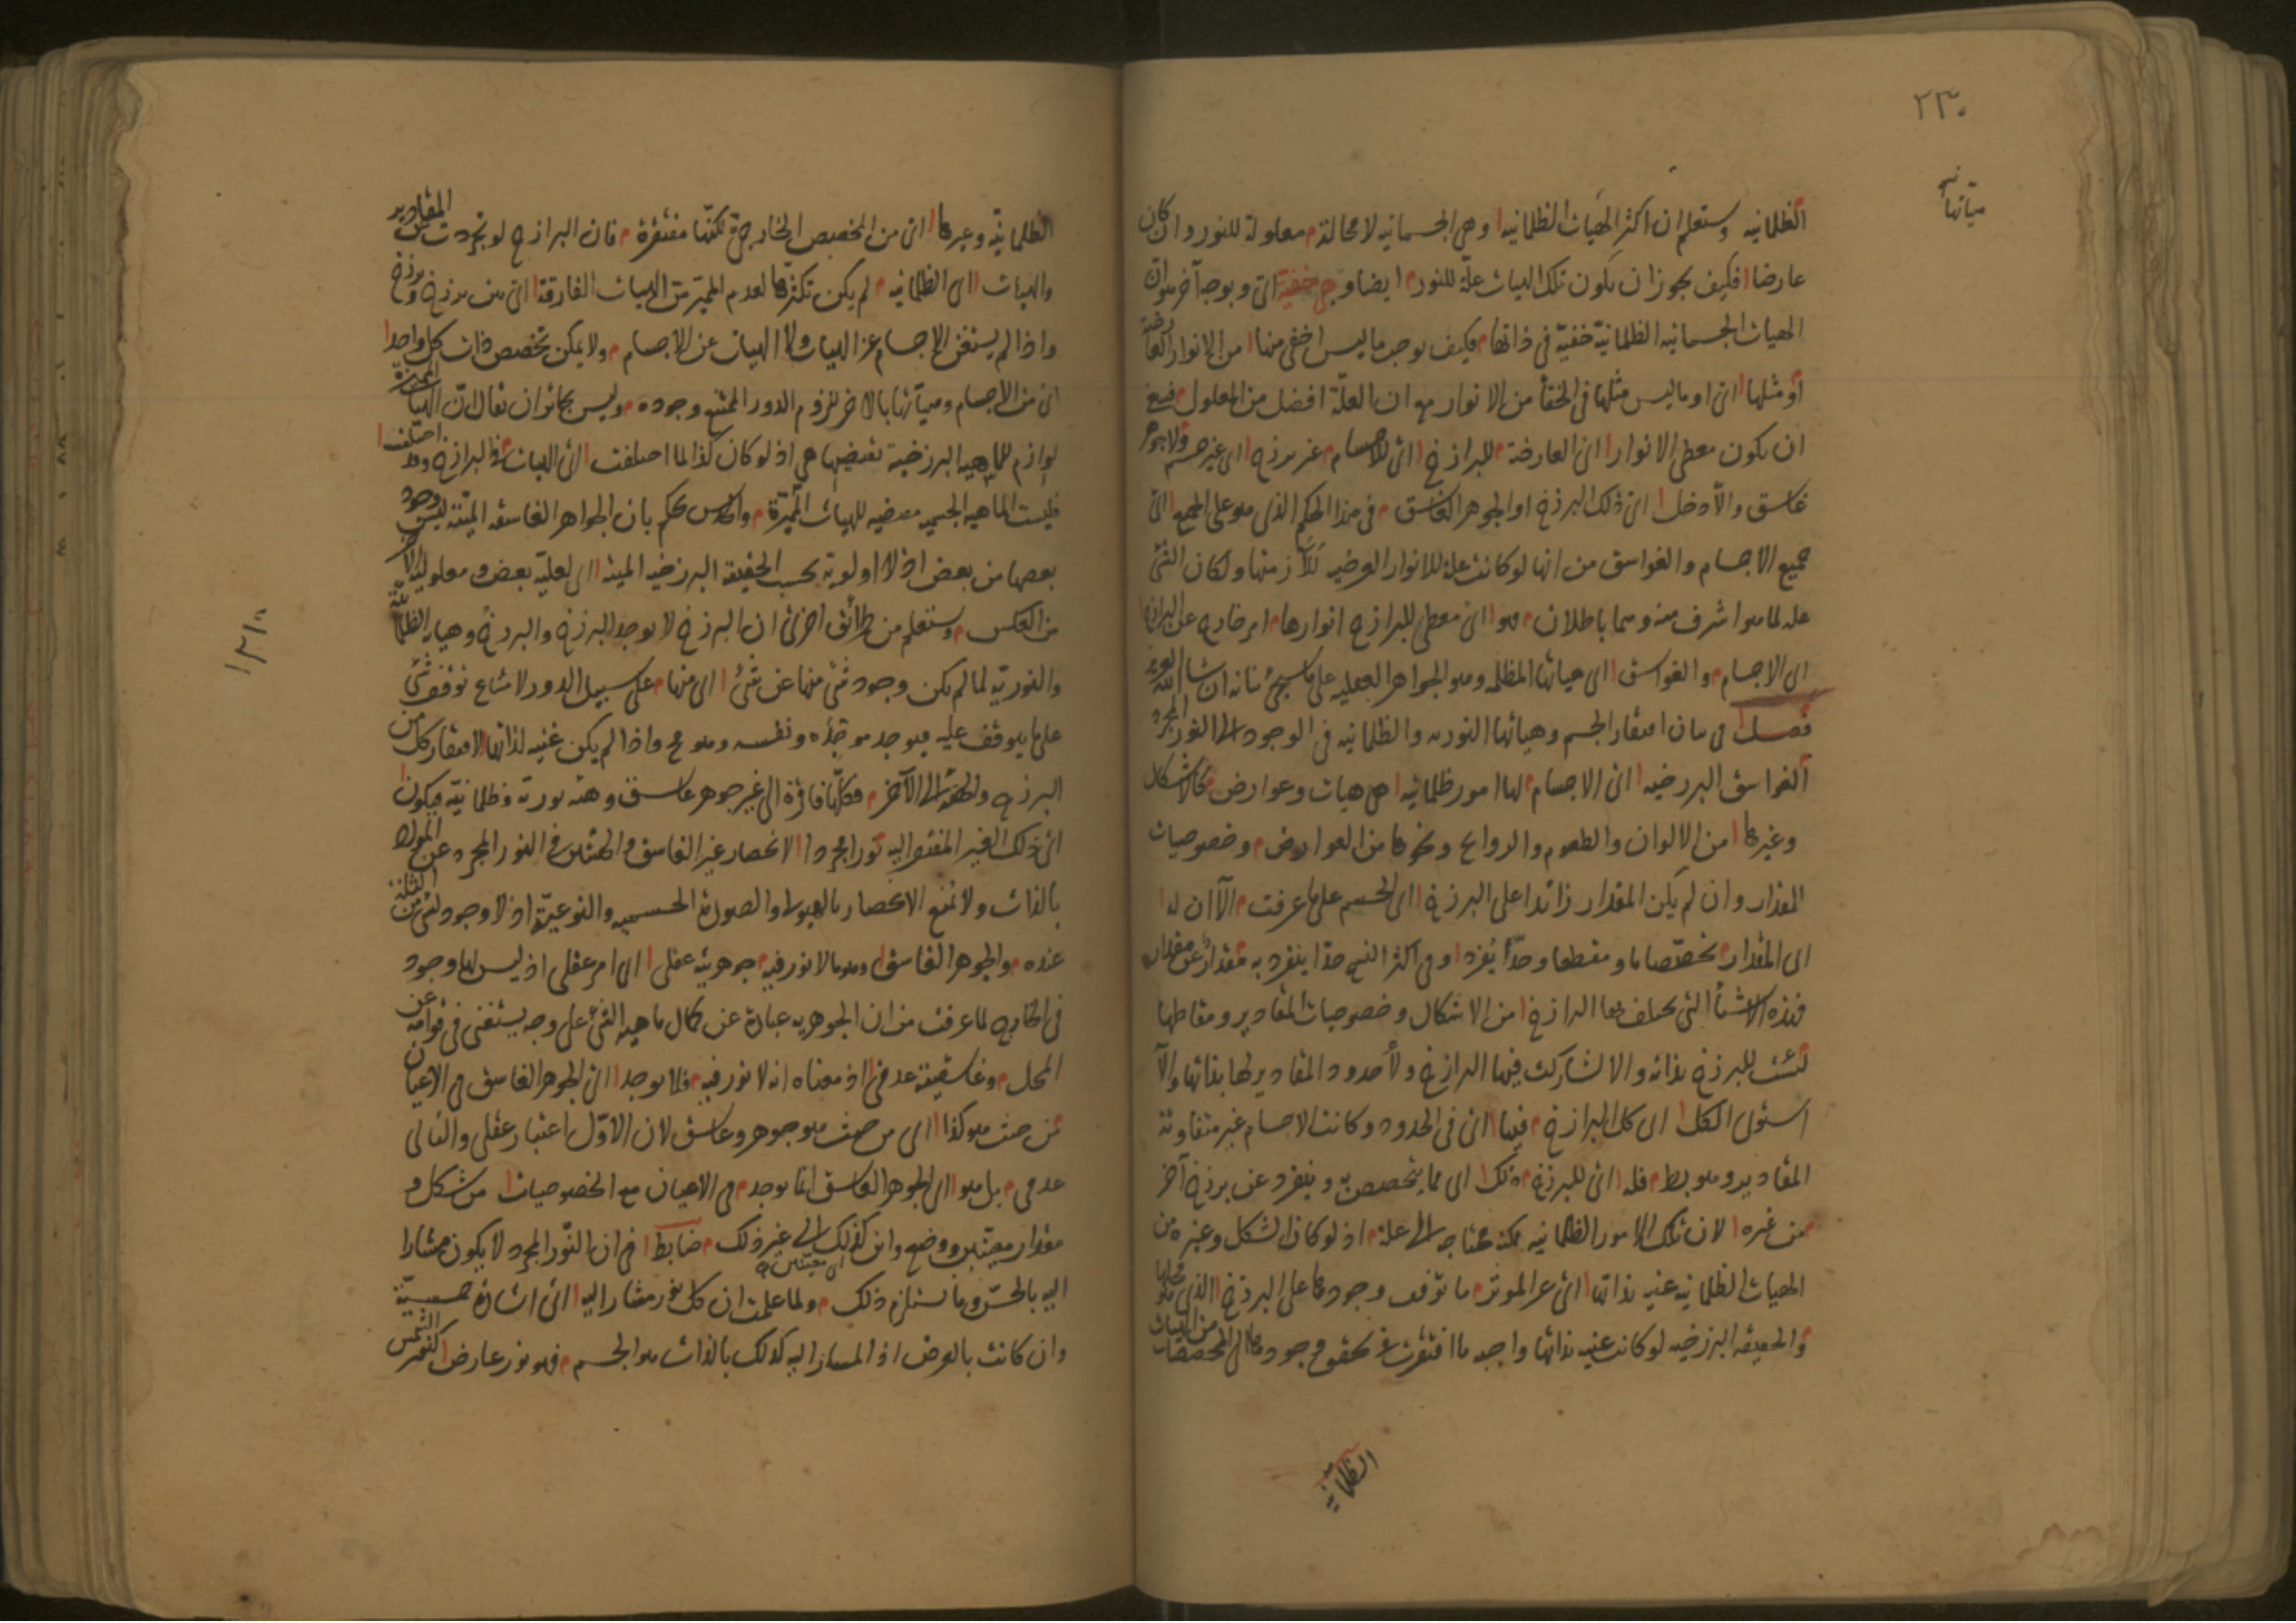 ٢٣٠
هيآتها
الظلمانيه وستعلم ان اكثر الهيات الظلمانيه وهى الجسمانيه لا محالة معلولة للنور وان كان
عارضا فكيف يجوز ان يكون تلك الهيات علة للنور ايضا وهى خفية اى وبوجه آخر هو ان
الهيات الجسمانيه الظلمانية خفية فى ذاتها فكيف يوجب ما ليس اخفى منها من الانوار العارضة
او مثلها اى او ما ليس مثلها فى الخفا من الانوار مع ان العلة افضل من المعلول فينبغى
ان يكون معطى الانوار اى العارضة للبرازخ اى للاجسام غير برزخ اى غير جسم ولا جوهر
غاسق والا دخل اى ذلك البرزخ او الجوهر الغاسق فى هذا الحكم الذى هو على الجميع اى
جميع الاجسام والغواسق من انها لو كانت علة للانوار العرضيه للازمتها ولكان الشئ
علة لما هو اشرف منه وهما باطلان فهو اى معطى للبرازخ انوارها امر خارج عن البرازخ
اى الاجسام والغواسق اى هياتها المظلمه وهو الجواهر العقليه على ما سيجئ بيانه ان شا الله العزيز
فصل فى بيان افتقار الجسم وهياتها النوريه والظلمانيه فى الوجود الى النور المجرد
الغواسق البرزخيه اى الاجسام لها امور ظلمانيه هى هيات وعوارض كالاشكال
وغيرها من الالوان والطعوم والروايح ونحوها من العوارض وخصوصيات
المقدار وان لم يكن المقدار زائدا على البرزخ اى الجسم على ما عرفت الا ان له
اى المقدار تخصصا ما ومقطعا وحدا ينفرد وفى اكثر النسخ حدا ينفرد به مقدار عن مقدار
فهذه الاشيا التى يختلف بها البرازخ من الاشكال وخصوصيات المقادير ومقاطعها
ليست للبرزخ بذاته والا لتشاركت فيها البرازخ ولا حدود المقادير لها بذاتها والا
استوى الكل اى كل البرازخ فيها اى فى الحدود وكانت الاجسام غير متفاوتة
المقادير وهو بط فله اى للبرزخ ذلك اى ما يتخصص به وينفرد عن برزخ آخر
من غيره لان تلك الامور الظلمانيه ممكنة محتاجه الى علة اذ لو كان الشكل وغيره من
الهيات الظلمانيه غنيه بذاتها اى عن الموثر ما توقف وجودها على البرزخ الذى هو محلها
والحقيقه البرزخيه لو كانت غنيه بذاتها واجبه ما افتقرت فى تحقق وجودها الى المخصصات من الهيات
الظلمانية
الظلمانية وغيرها اى من المخصص الخارجى لكنها مفتقرة فان البرازخ لو تجردت عن المقادير
والهيات اى الظلمانيه لم يكن تكثرها لعدم المميز من الهيات الفارقة اى بين برزخ وبرزخ
واذا لم يستغن الاجسام عن الهيات ولا الهيات عن الاجسام ولا يمكن تخصص ذات كل واحد
اى من الاجسام وهيآتها بالاخر للزوم الدور الممتنع وجوده وليس بجائز ان يقال ان الهيات المميزة
لوازم للماهيه البرزخية تقتضيها هى اذ لو كان كذا لما اختلفت اى الهيات فى البرازخ وقد اختلفت
فليست الماهيه الجسميه مقتضيه للهيات المميزة والحدس يحكم بان الجواهر الغاسقه الميتة ليس وجود
بعضها من بعض اذ لا اولوية بحسب الحقيقه البرزخيه الميتة اى لعليه بعض ومعلوليه الآخر
من العكس وستعلم من طرائق اخرى ان البرزخ لا يوجد البرزخ والبرزخ وهياته الظلمانيه
والنوريه لما لم يكن وجود شئ منها عن شئ اى منها على سبيل الدور لامتناع توقف شئ
على ما يتوقف عليه فيوجد موجده ونفسه وهو مح واذا لم يكن غنيه لذاتها لافتقار كل من
البرزخ والهيئه الى الآخر فكلها فاقرة الى غير جوهر غاسق وهيئه نورية وظلمانيه فيكون
اى ذلك الغير المفتقر اليه نورا مجردا لانحصار غير الغاسق والهيئتين فى النور المجرد عن المواد
بالذات ولا نمنع الانحصار بالهيولى والصورة الجسميه والنوعية اذ لا وجود لشئ من الثلثة
عنده والجوهر الغاسق وهو ما لا نور فيه جوهريته عقلى اى امر عقلى اذ ليس لها وجود
فى الخارج لما عرفت من ان الجوهريه عبارة عن كمال ماهيه الشئ على وجه يستغنى فى قوامه عن
المحل وغاسقيته عدمى اذ معناه انه لا نور فيه فلا يوجد اى الجوهر الغاسق فى الاعيان
من حيث هو كذا اى من حيث هو جوهر وغاسق لان الاول اعتبار عقلى والثانى
عدمى بل هو اى الجوهر الغاسق انما يوجد فى الاعيان مع الخصوصيات من شكل و
مقدار معينين ووضع واين كذلك اى معينين الى غير ذلك ضابط فى ان النور المجرد لا يكون مشارا
اليه بالحس وما يستلزم ذلك ولما علمت ان كل نور مشار اليه اى اشارة حسية
وان كانت بالعرض اذ المشار اليه كذلك بالذات هو الجسم فهو نور عارض كنور الشمس